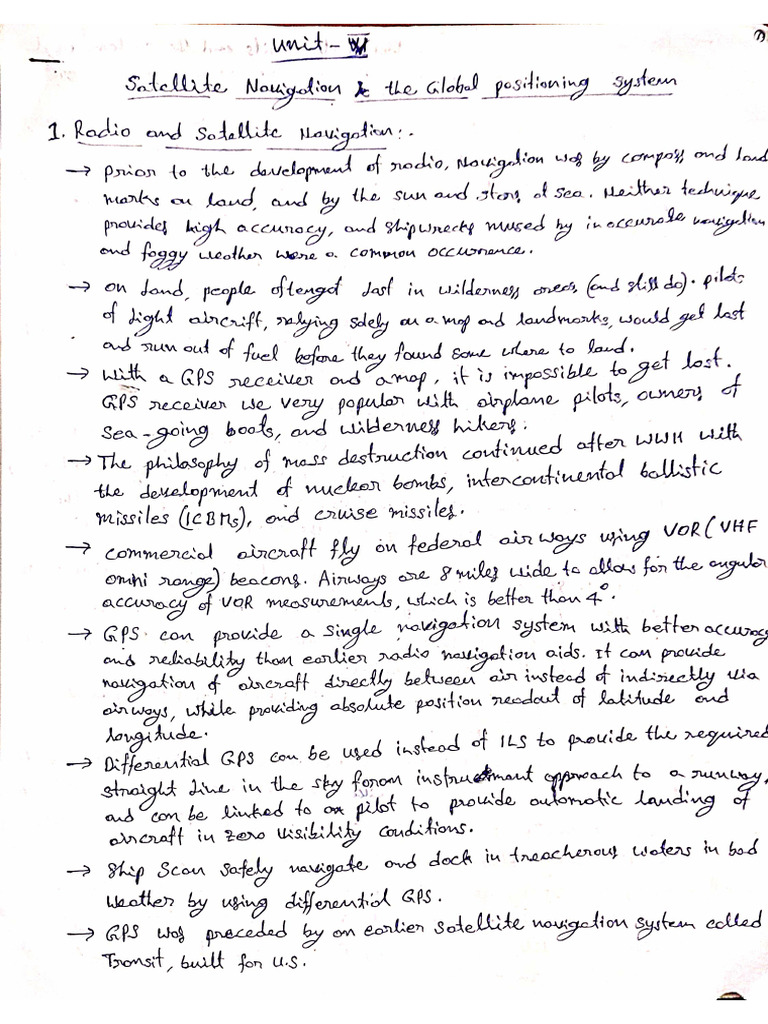 Unit - VI
Satellite Navigation & the Global positioning system
1. Radio and Satellite Navigation:.
→ prior to the development of radio, Navigation was by compass and land
marks on land, and by the sun and stars at sea. Neither technique
provides high accuracy, and shipwrecks mused by inaccurate navigation
and foggy weather were a common occurrence.
→ on land, people oftengot lost in wilderness areas (and still do). pilots
of light aircrift, relying solely on a map and landmarks, would get lost
and run out of fuel before they found some where to land.
→ With a GPS receiver and a map, it is impossible to get lost.
GPS receiver we very popular with airplane pilots, owners of
sea-going boats, and wilderness hikers.
→ The philosophy of mass destruction continued after WWII with
the development of nuclear bombs, intercontinental ballistic
missiles (ICBMs), and cruise missiles.
→ commercial aircraft fly on federal airways using VOR (VHF
omni range) beacons. Airways are 8 miles wide to allow for the angular
accuracy of VOR measurements, which is better than 4°.
→ GPS can provide a single navigation system with better accuracy
and reliability than earlier radio navigation aids. It can provide
navigation of aircraft directly between air instead of indirectly via
airways, while providing absolute position readout of latitude and
longitude.
→ Differential GPS can be used instead of ILS to provide the required
straight line in the sky foron instrument approach to a runway,
and can be linked to pilot to provide automatic landing of
aircraft in zero visibility conditions.
→ Ship Scan safely navigate and dock in treacherous waters in bad
weather by using differential GPS.
→ GPS was preceded by an earlier satellite navigation system called
Transit, built for U.S.